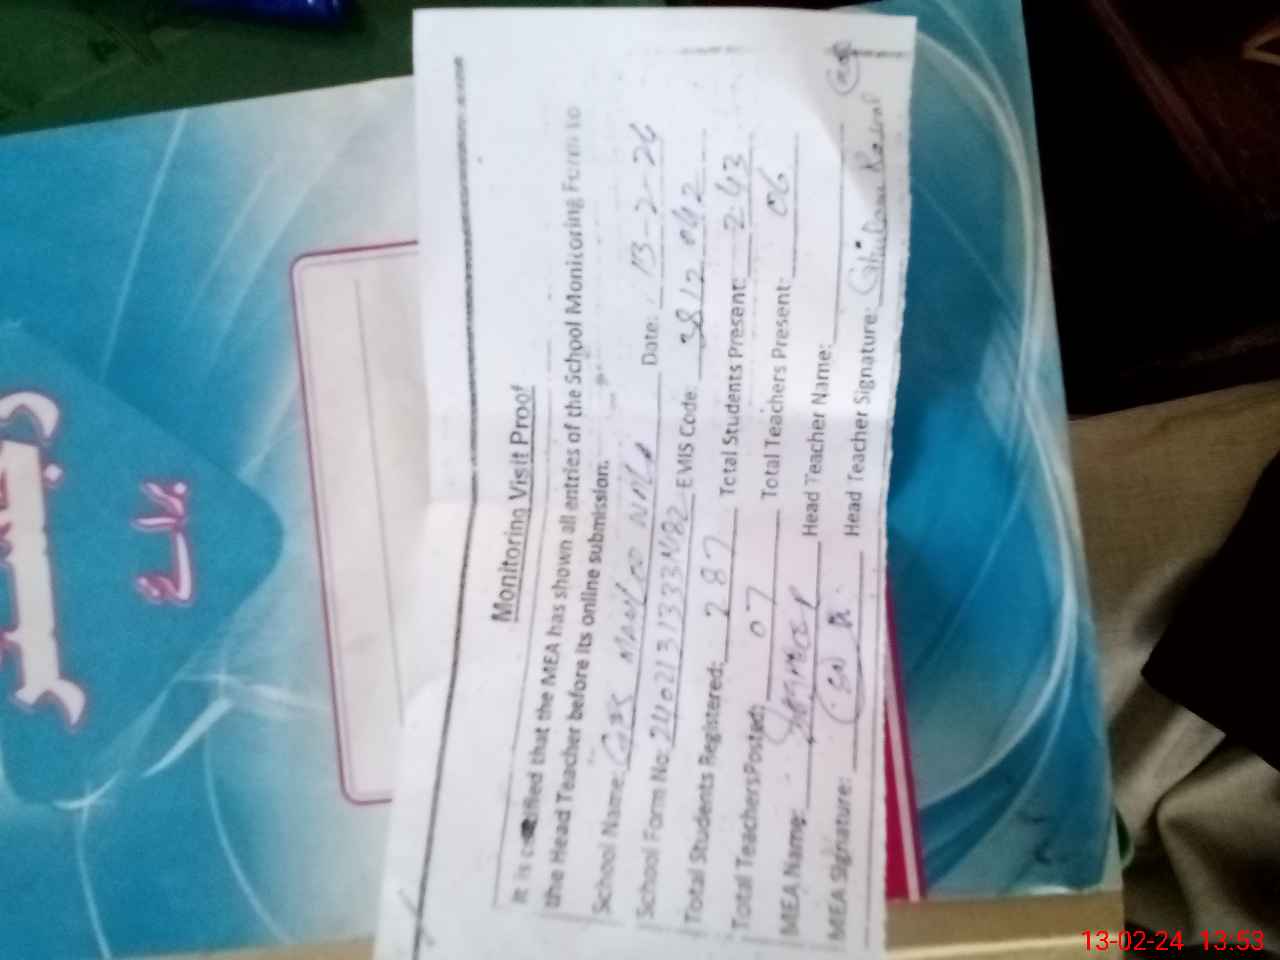 Monitoring Visit Proof
It is certified that the MEA has shown all entries of the School Monitoring Form to
the Head Teacher before its online submission.
School Name: Date: 13-2-24
School Form No: EMIS Code: 3812 042
Total Students Registered: 287 Total Students Present: 243
Total Teachers Posted: 07 Total Teachers Present: 06
MEA Name: Head Teacher Name:
MEA Signature: Head Teacher Signature: Ghulam Rasul
رجسٹر
برائے
13-02-24 13:53